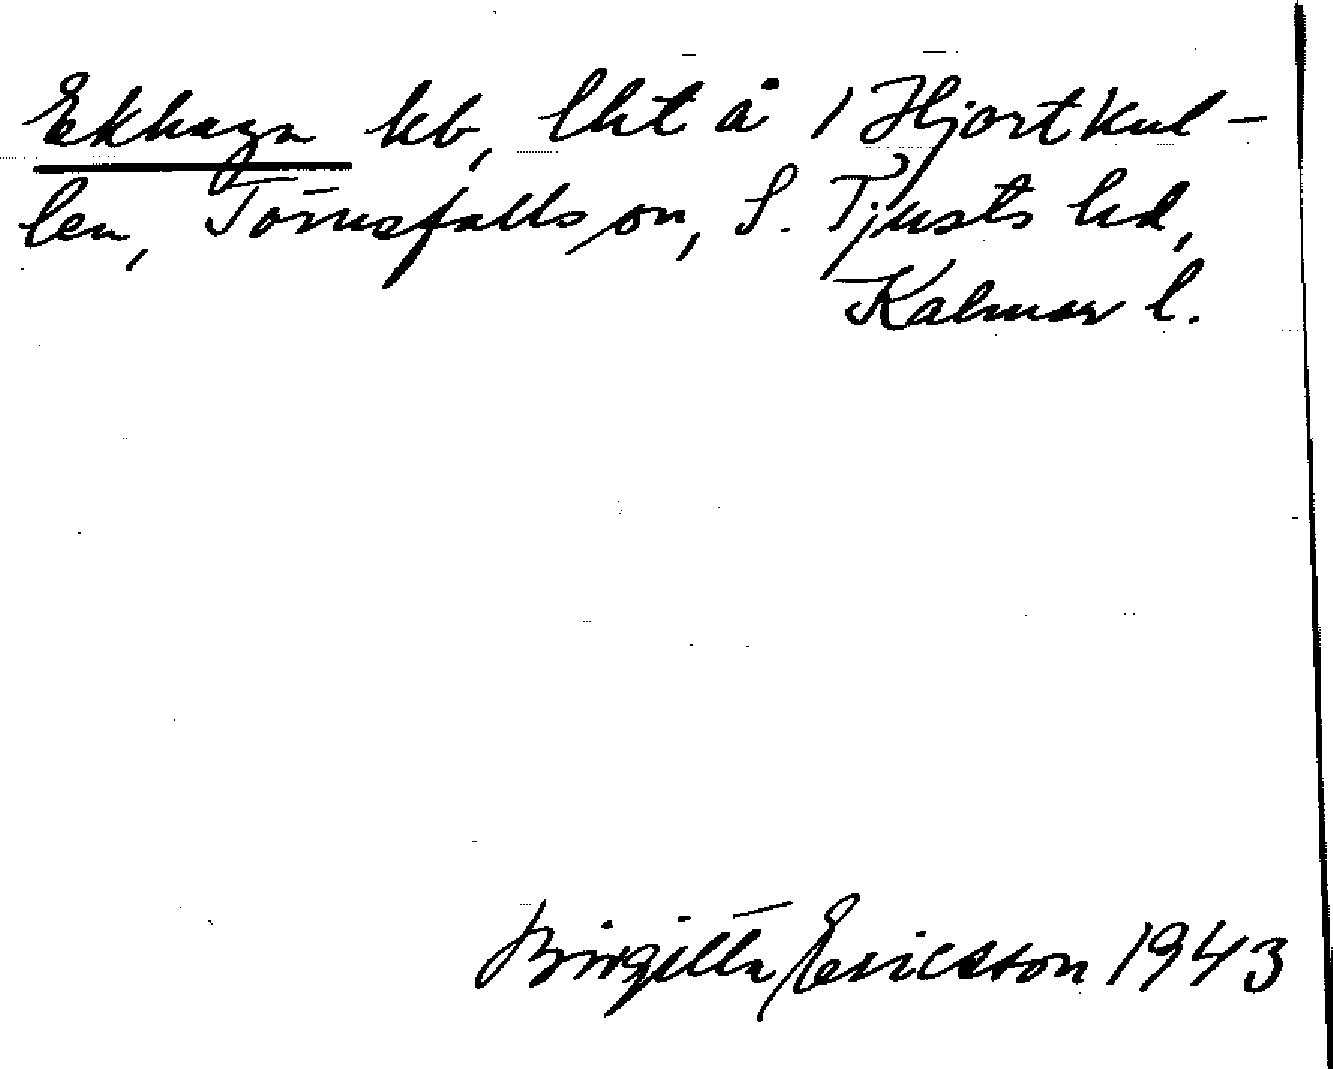 Ekhagen hb, lht å 1 Hjortkul-
len, Törnsfalls sn, S. Tjusts hd,
Kalmar l.
Birgitta Ericsson 1943